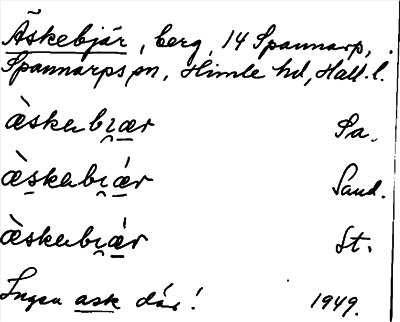 Äskebjär, berg, 14 Spannarp,
Spannarps sn, Himle hd, Hall. l.
æ̀skabi̯ær Sa.
æ̀skabi̯ǽr Sand.
æ̀skabi̯ǽr St.
Ingen ask där! 1949.